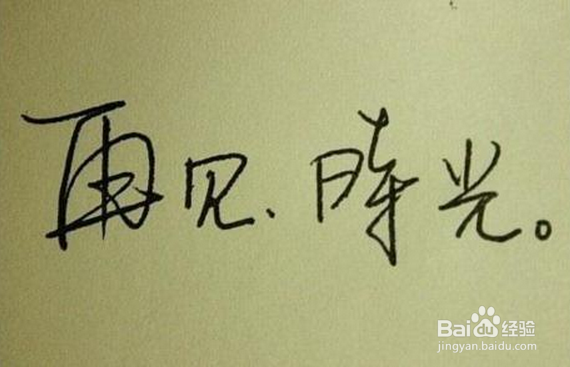 再见、時光。
Baidu经验
jingyan.baidu.com